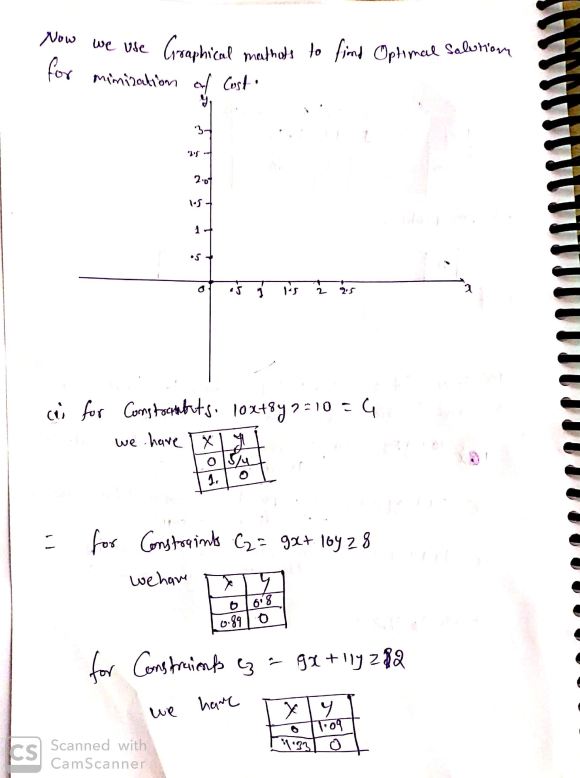 Now we use Graphical mathods to find Optimal Salution
for mimization of Cost.
y
3
2.5
2.0
1.5
1
.5
0 .5 1 1.5 2 2.5 x
(i) for 10x+8y >= 10 = C1
we have
x y
0 5/4
1. 0
= for Constraints C2 = 9x+ 10y ≥ 8
we have
x y
0 0.8
0.89 0
for C3 = 9x + 11y ≥ 12
we have
x y
0 1.09
1.33 0
CS Scanned with
CamScanner